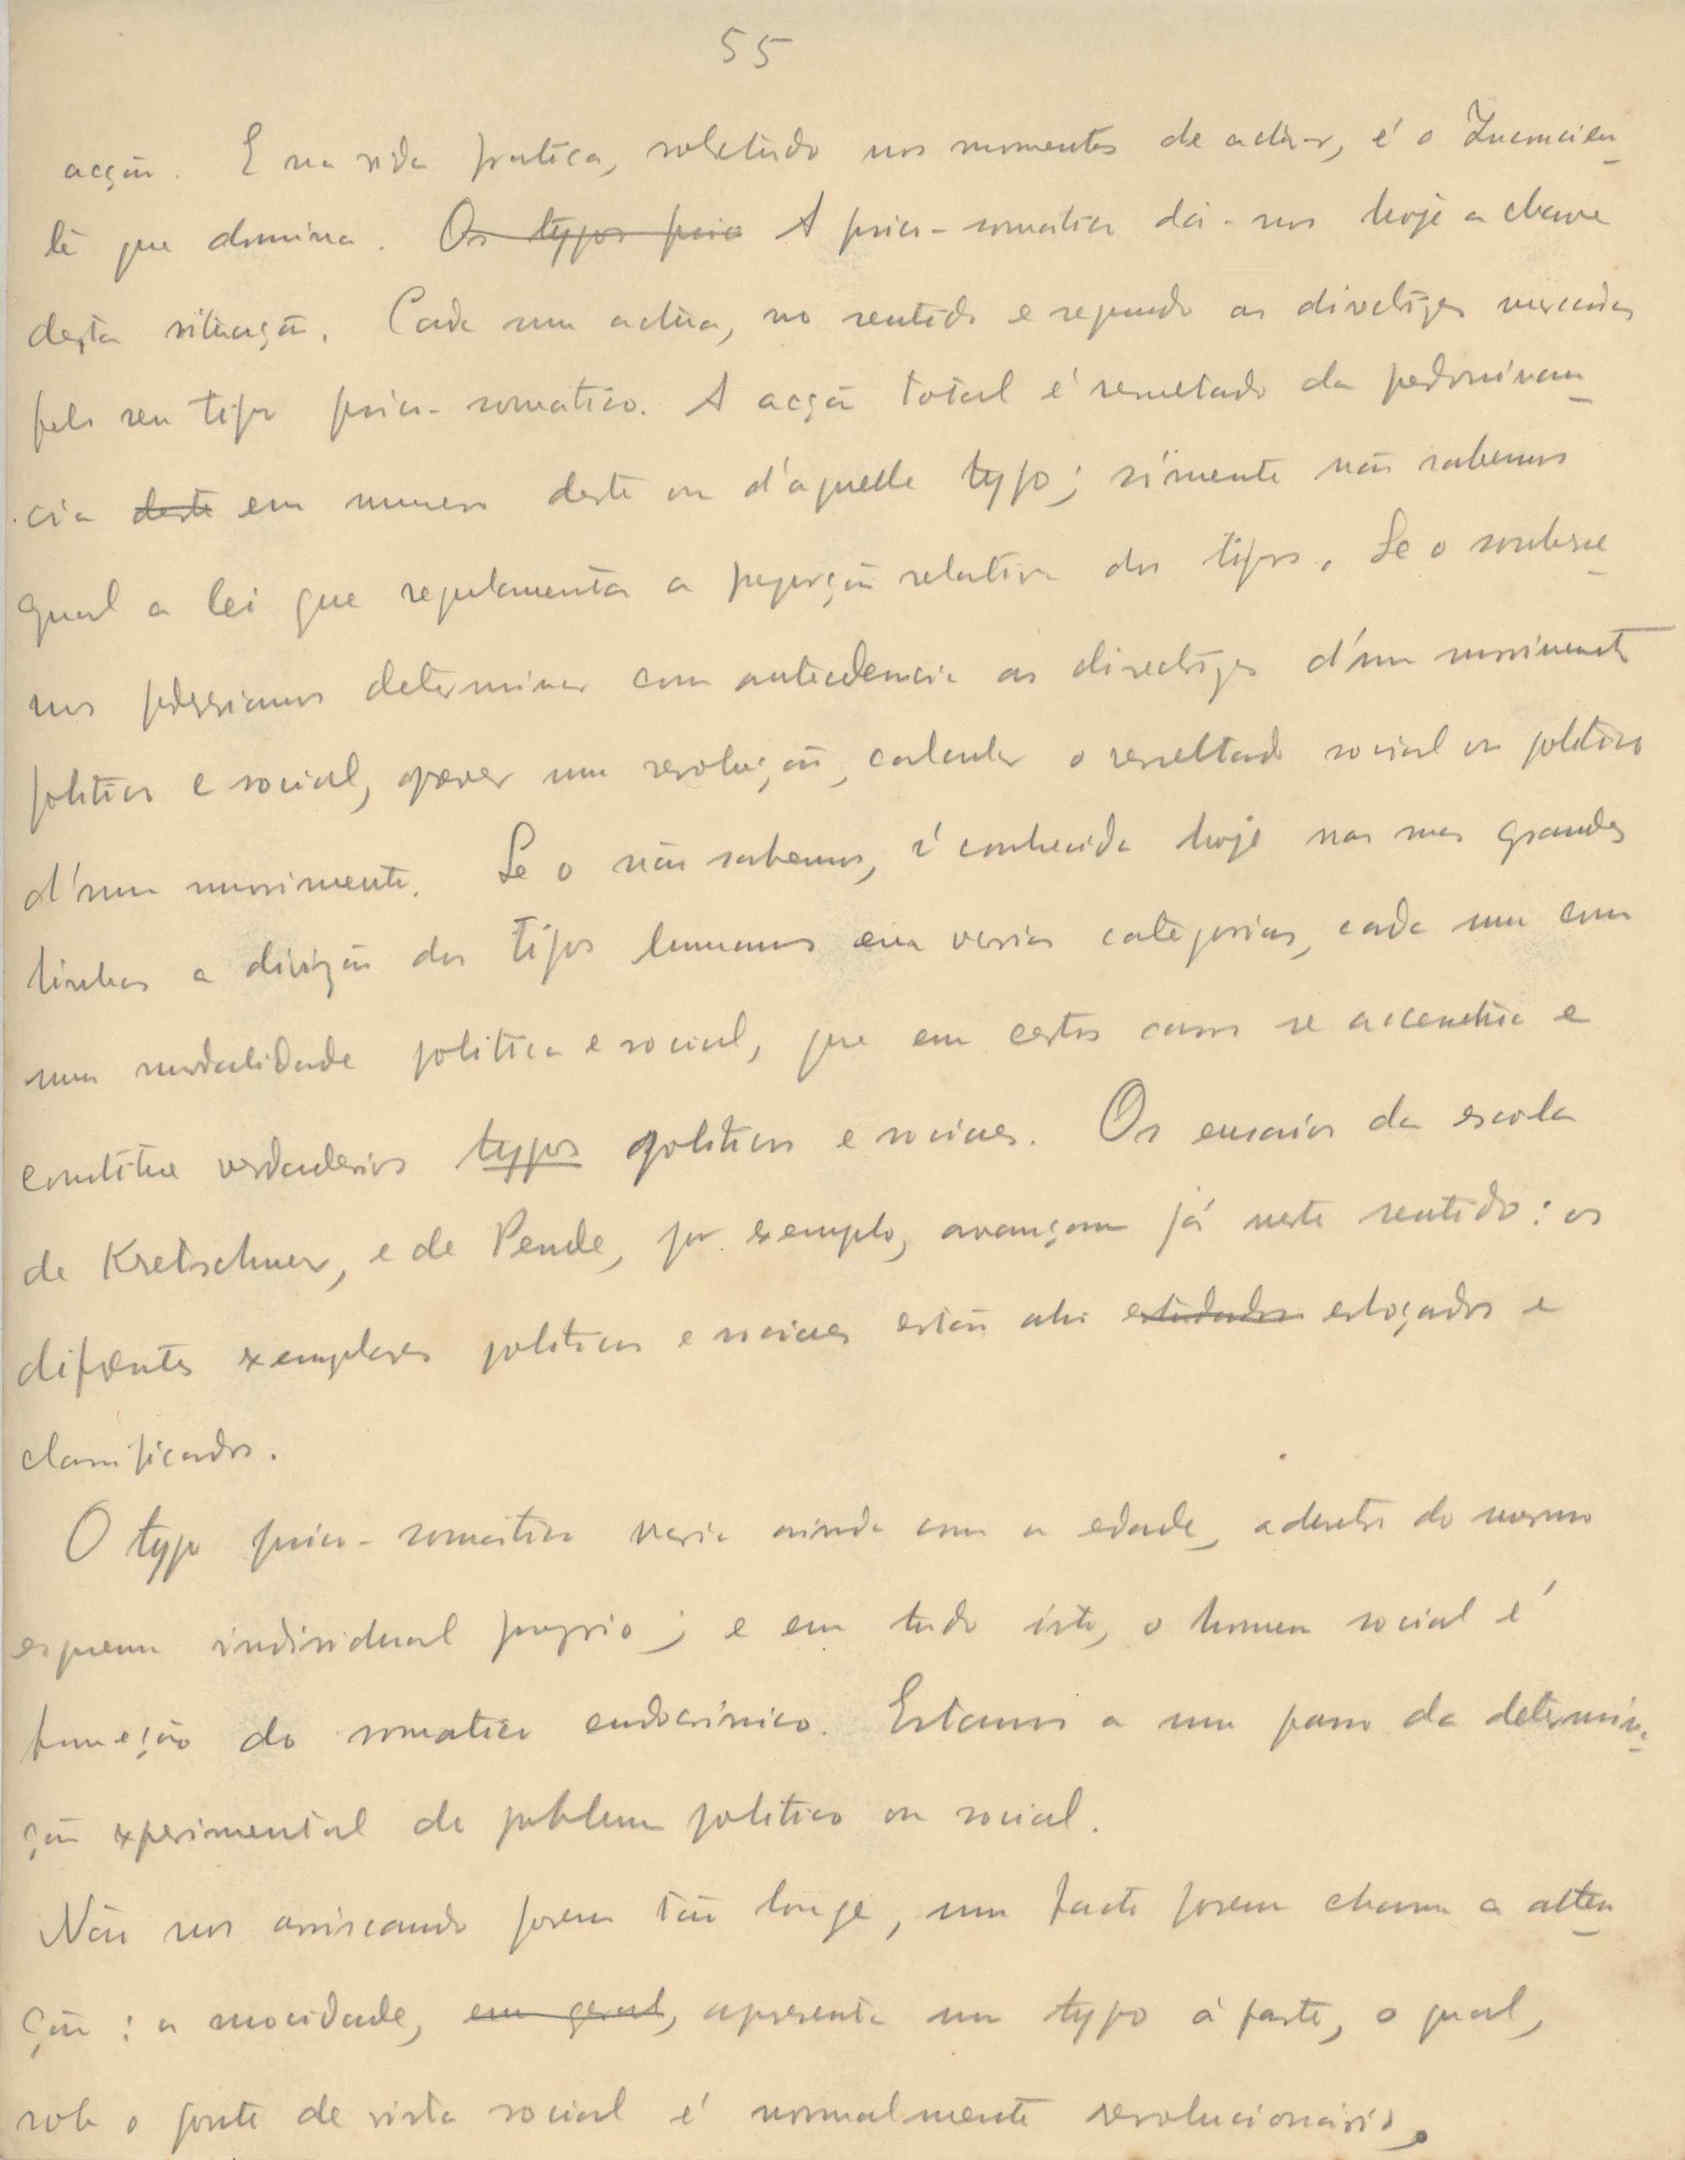 55
acção. E na vida pratica, sobretudo nos momentos de actuar, é o Inconscien-
te que domina. Os typos psico A psico-somatica dá-nos hoje a chave
desta situação. Cada um actua, no sentido e segundo as directizes
pelo seu tipo psico-somatico. A acção total é resultado da predominan-
cia deste em numero deste ou d'aquelle typo; sómente não sabemos
qual a lei que regulamenta a proporção relativa dos tipos. Se o soubesse-
mos poderiamos determinar com antecedencia as directizes d'um movimento
politico e social, prever uma revolução, calcular o resultado social ou politico
d'um movimento. Se o não sabemos, é conhecida hoje nas suas grandes
linhas a divizão dos tipos humanos em varias categorias, cada uma com
uma modalidade politica e social, que em certos casos se accentua e
constitue verdadeiros typos politicos e sociaes. Os ensaios da escola
de Kretschmer, e de Pende, por exemplo, avançam já neste sentido: os
diferentes exemplares politicos e sociaes estão ahi estudados esboçados e
classificados.
O typo psico-somatico varia ainda com a edade, adentro do mesmo
esquema individual proprio; e em tudo isto, o homem social é
funcção do somatico endocrinico. Estamos a um passo da determina-
ção experimental do problema politico ou social.
Não nos arriscando porem tão longe, um facto porem chama a atten-
ção: a mocidade, em geral, apresenta um typo á parte, o qual,
sob o ponto de vista social é normalmente revolucionario.